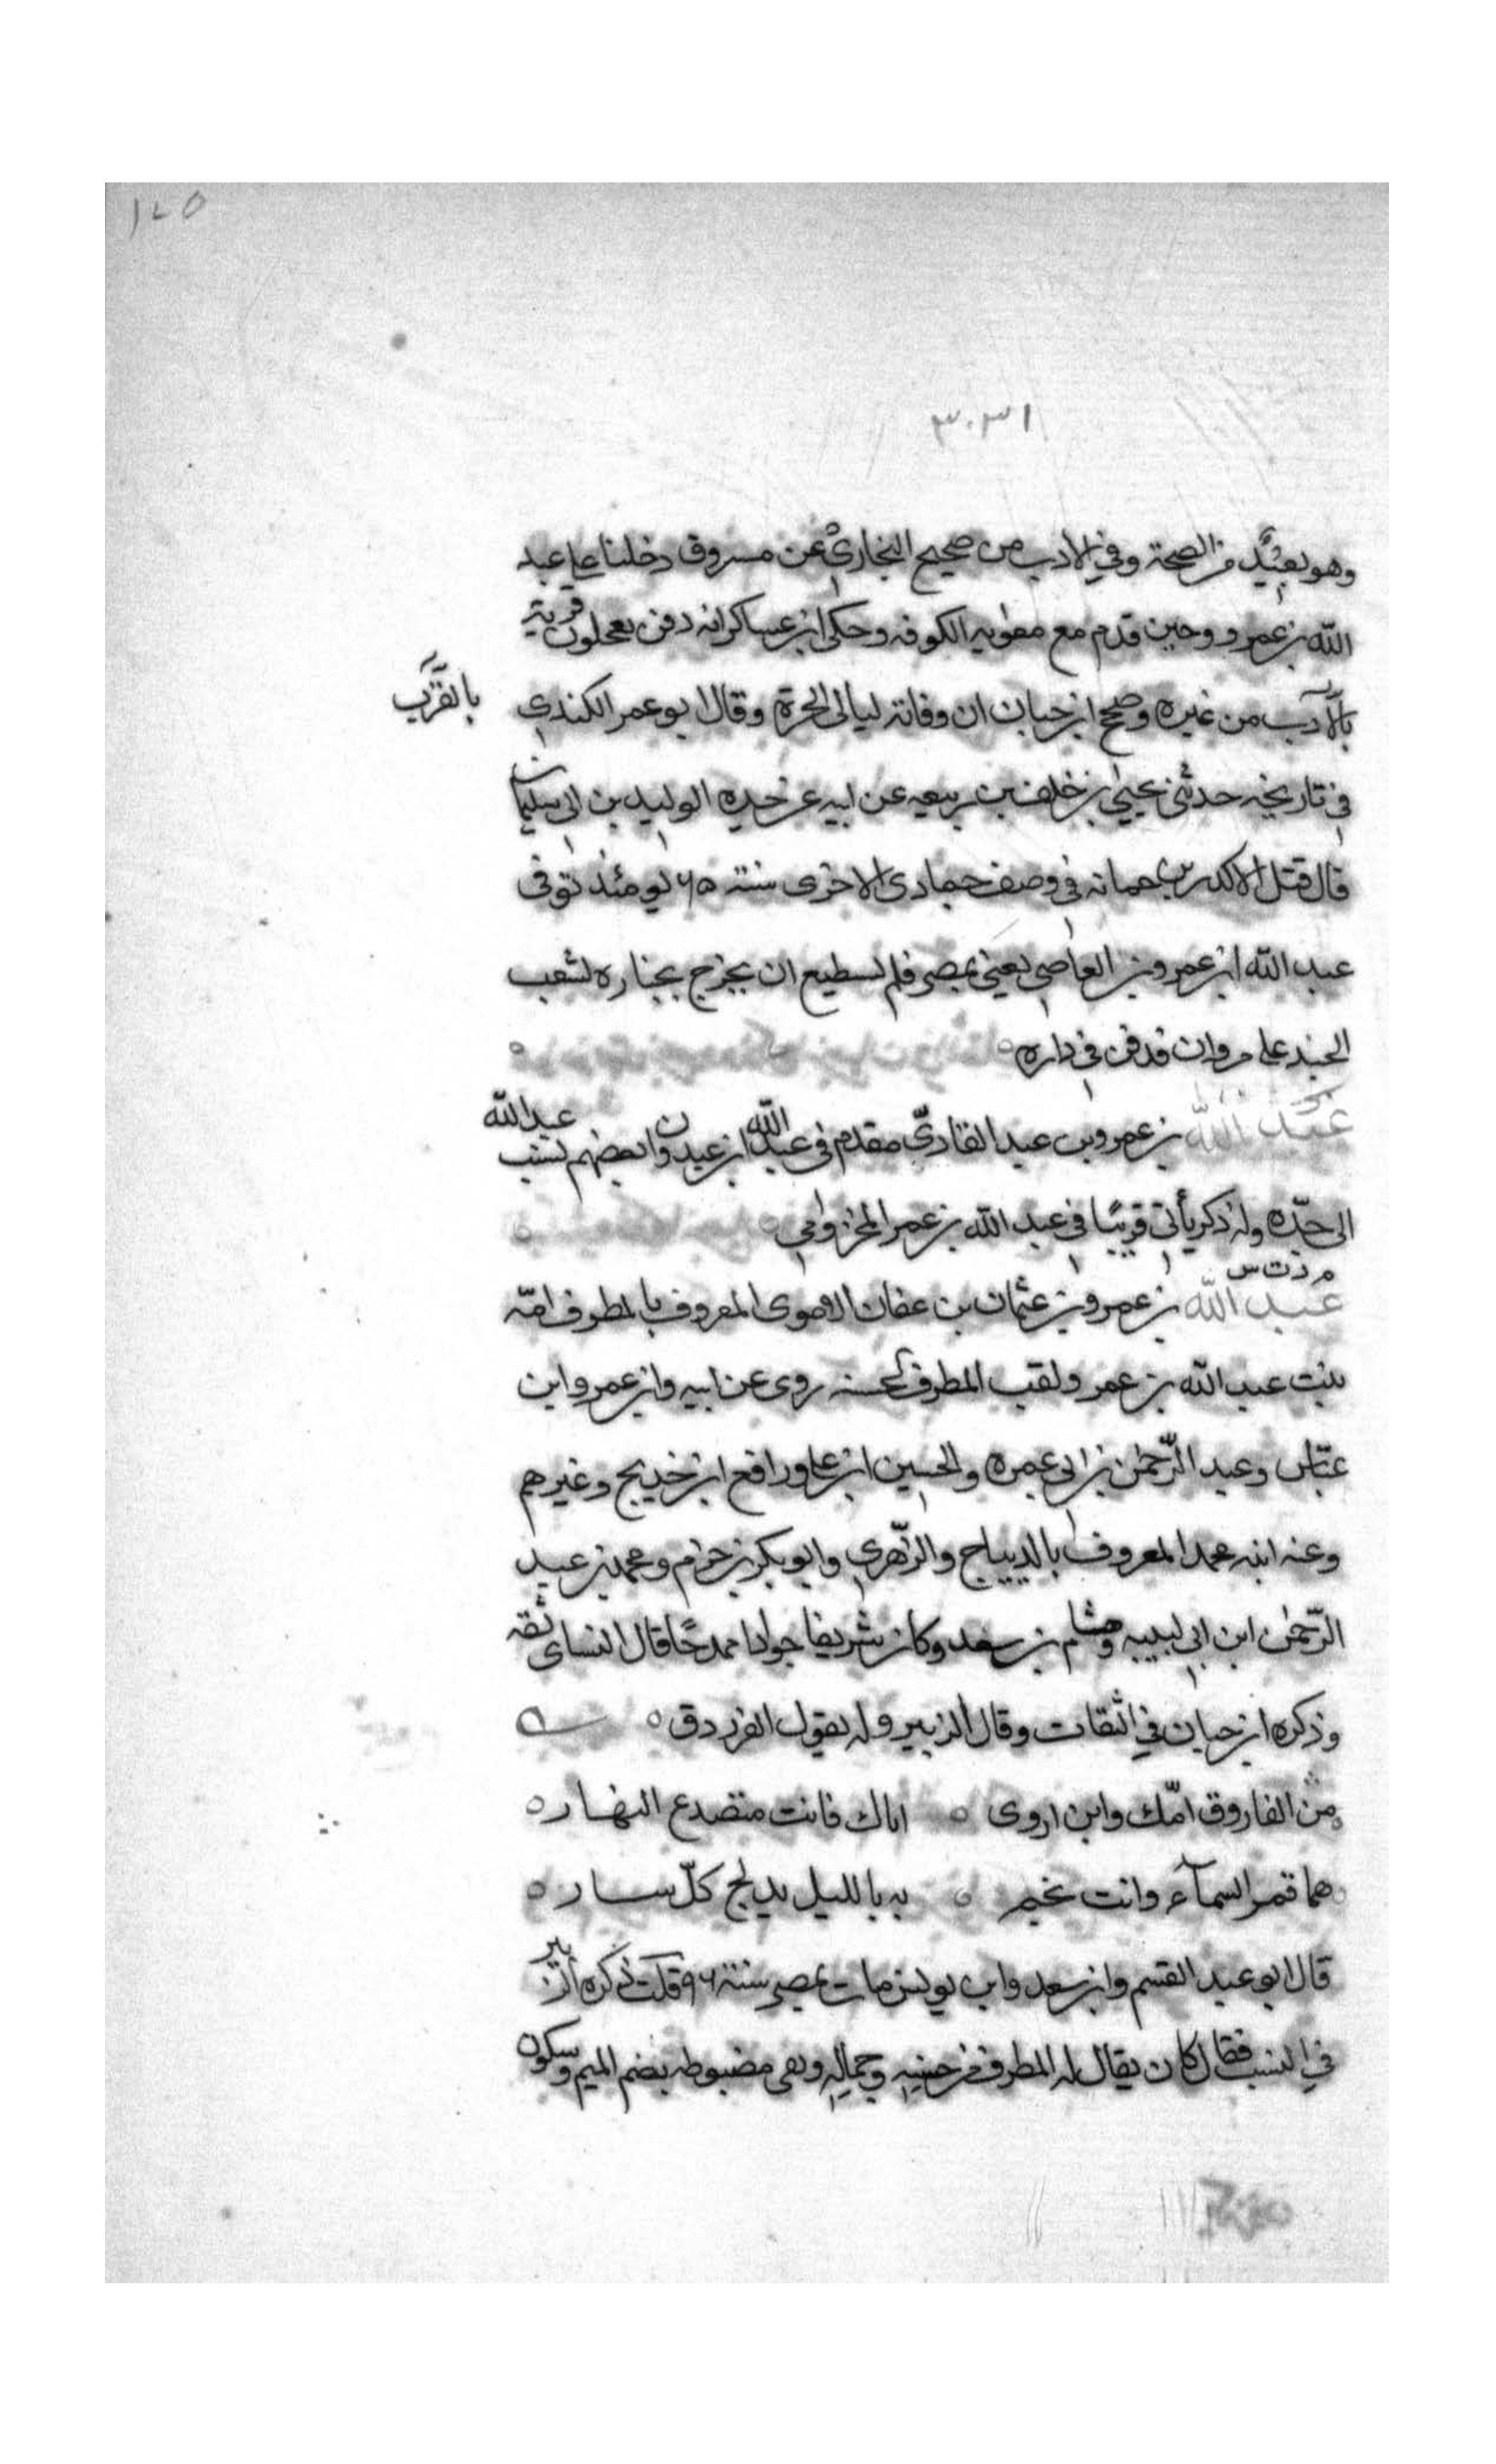 ١٤٥
٣٠٣١
وهو بعيد من الصحة وفي الادب من صحيح البخاري عن مسروق دخلنا على عبد
الله بن عمرو وحين قدم مع معويه الكوفه وحكى ابن عساكر انه دفن بعجلون قرية
بالقرب
بالآدب من غيره وصحح ابن حبان ان وفاته ليالى الحرة وقال ابو عمر الكندي
في تاريخه حدثني يحيى بن خلف بن ربيعه عن ابيه عن جده الوليد بن ابي سليمان
قال قتل الاكدر بن همامه في وصف جمادى الاخرى سنة ٦٥ يومئذ توفى
عبد الله ابن عمرو بن العاصي يعني بمصر فلم لسطيع ان يخرج بجنازه لشعب
الجند على مروان فدفن في داره
عبد الله بن عمرو بن عبد القاديّ مقدم في عبد الله ابن عبدون وابعضهم لسنب عبد الله
الى جدّه وله ذكر يأتى قريبًا في عبد الله بن عمر المخزوامي
م د ت س
عبد الله بن عمرو بن عثمان بن عفان الاموى المعروف بالمطرف امّه
بنت عبد الله بن عمر ولقب المطرف لحسنه روى عن ابيه وابن عمر وابن
عبّاس وعبد الرّحمن بن ابى عمره والحسين ابن على ورافع ابن خديج وغيرهم
وعنه ابنه محمد المعروف بالديباج والزّهري وابو بكر بن حزام ومحمد بن عبد
الرّحمن ابن ابي لبيبه وهشام بن سعد وكان شريفا جوادا ممدحًا قال النساى ثقه
وذكره ابن حبان في الثقات وقال الزبير وله يقول الفرزدق
من الفاروق امّك وابن اروى ه اباك فانت منصدع النهار ه
هما قمر السمآء وانت نجم ه به بالليل يدلج كلّ سار ه
قال ابو عبد القسم وابن سعد وابن يونس مات بمصر سنة ٩٦ قلت ذكره الزبير
في النسب فقال كان يقال له المطرف من حسنه وجماله وهى مضبوطه بضم الميم وسكون